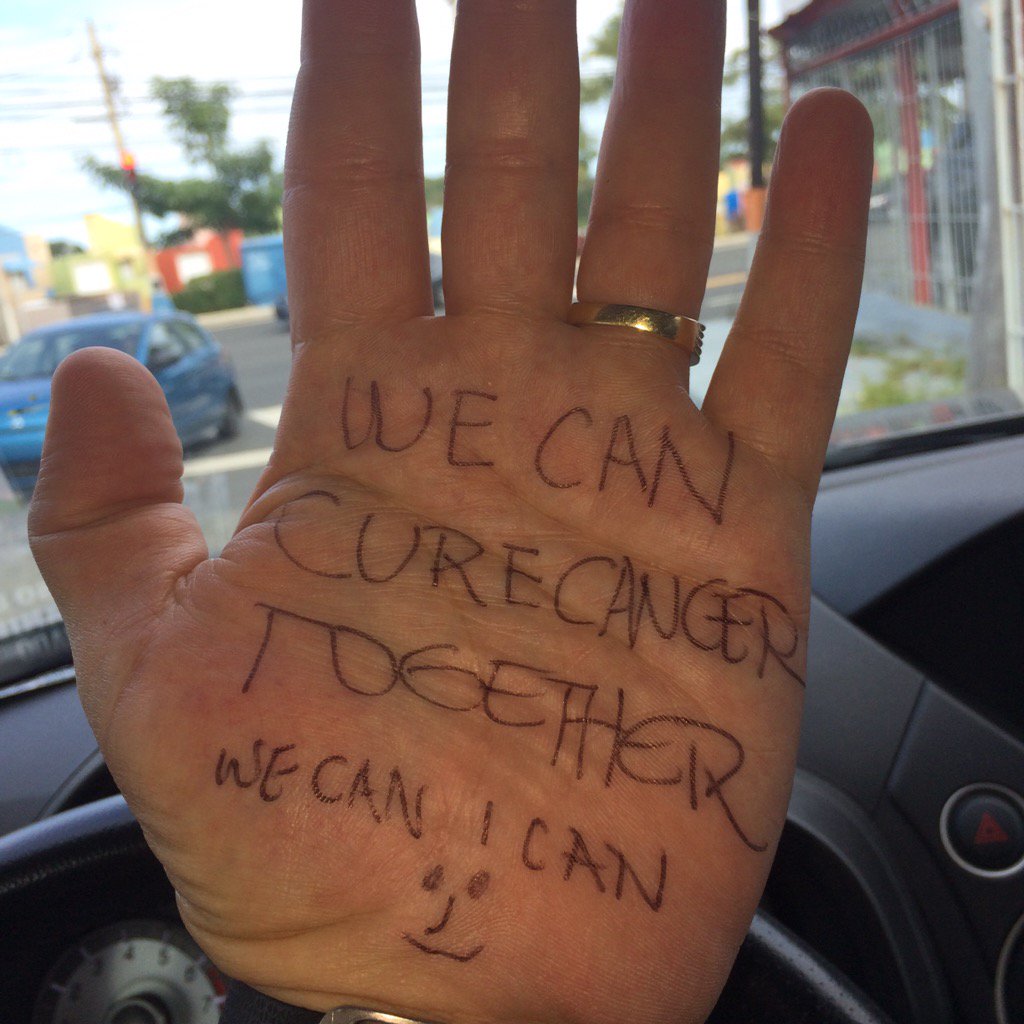 WE CAN
CURE CANCER
TOGETHER
WE CAN I CAN
4 5 6